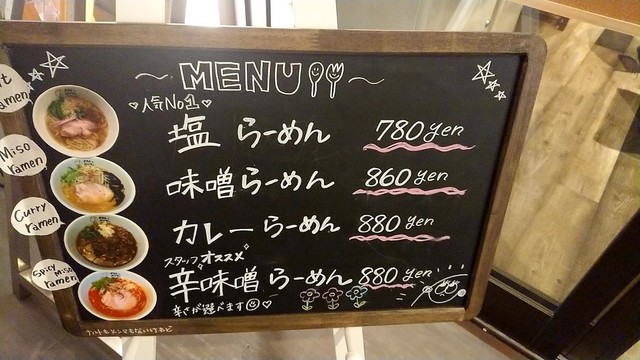 MENU
人気No1
塩らーめん 780yen
味噌らーめん 860yen
カレーらーめん 880yen
スタッフオススメ
辛味噌らーめん 880yen
辛さが選べます
ramen
Miso ramen
Curry ramen
Spicy miso ramen